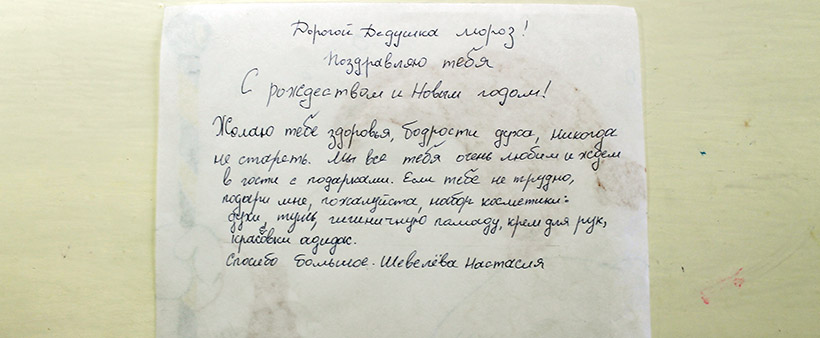 Дорогой Дедушка мороз!
Поздравляю тебя
С рождеством и Новым годом!
Желаю тебе здоровья, бодрости духа, никогда
не стареть. Мы все тебя очень любим и ждем
в гости с подарками. Если тебе не трудно,
подари мне, пожалуйста, набор косметики:
духи, тушь, гигиничную памаду, крем для рук,
красовки адидас.
Спосибо большое. Шевелёва Настасия